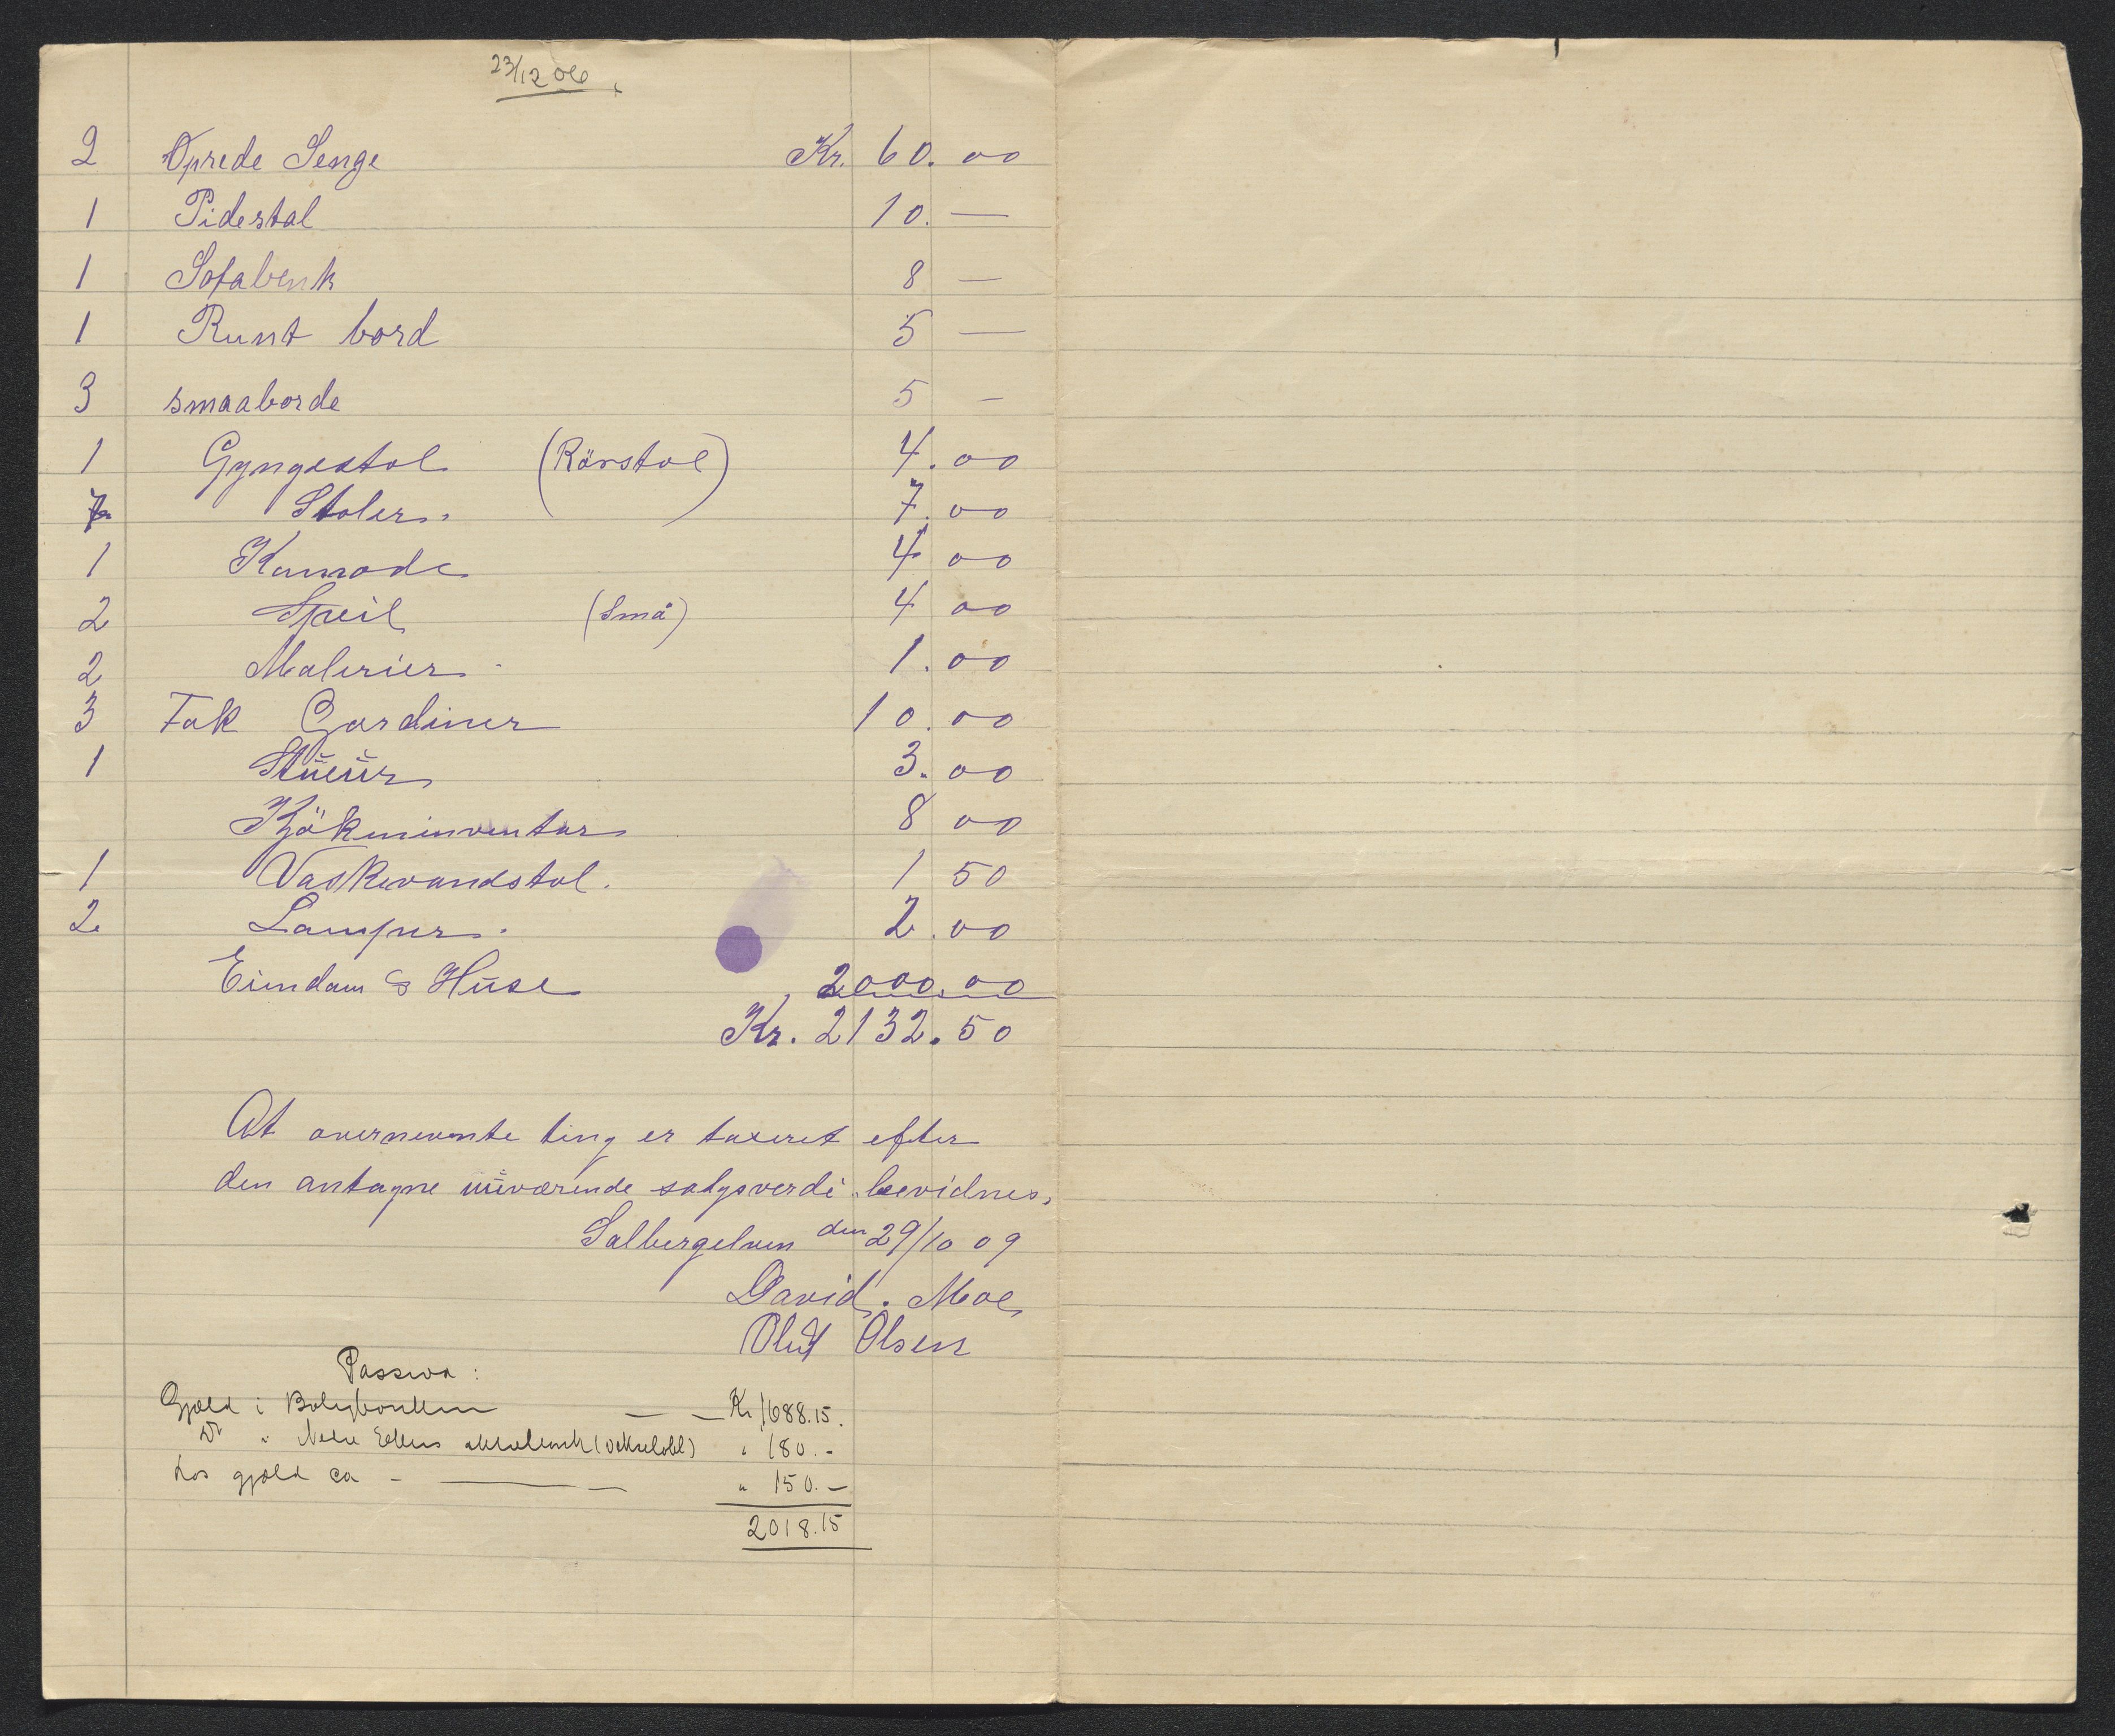 23/12 06
2 Oprede Senge Kr. 60. 00
1 Pidestal 10. —
1 Sofabenk 8 —
1 Runt bord 5 —
3 smaaborde 5 —
1 Gyngestol (Rörstol) 4. 00
7 Stoler. 7. 00
1 Kamode 4 00
2 Speil (Små) 4 00
2 Malerier 1. 00
3 Fak Gardiner 10. 00
1 Stueur 3. 00
Kjökeninventar 8 00
1 Vaskevandstol. 1 50
2 Lamper. 2. 00
Eiendam & Huse 2000.00
Kr. 2132.50
At overnevnte ting er taxeret efter
den antagne nuværende salgsverdi bevidnes,
Solbergelven den 29/10 09
David. Moe
Oluf Olsen
Passiva:
Gjæld i Boligbanken — — Kr 1688.15.
Do " Nedre Eikers (Vekselobl) " 180.-
Løs gjæld ca - — — " 150.—
2018.15